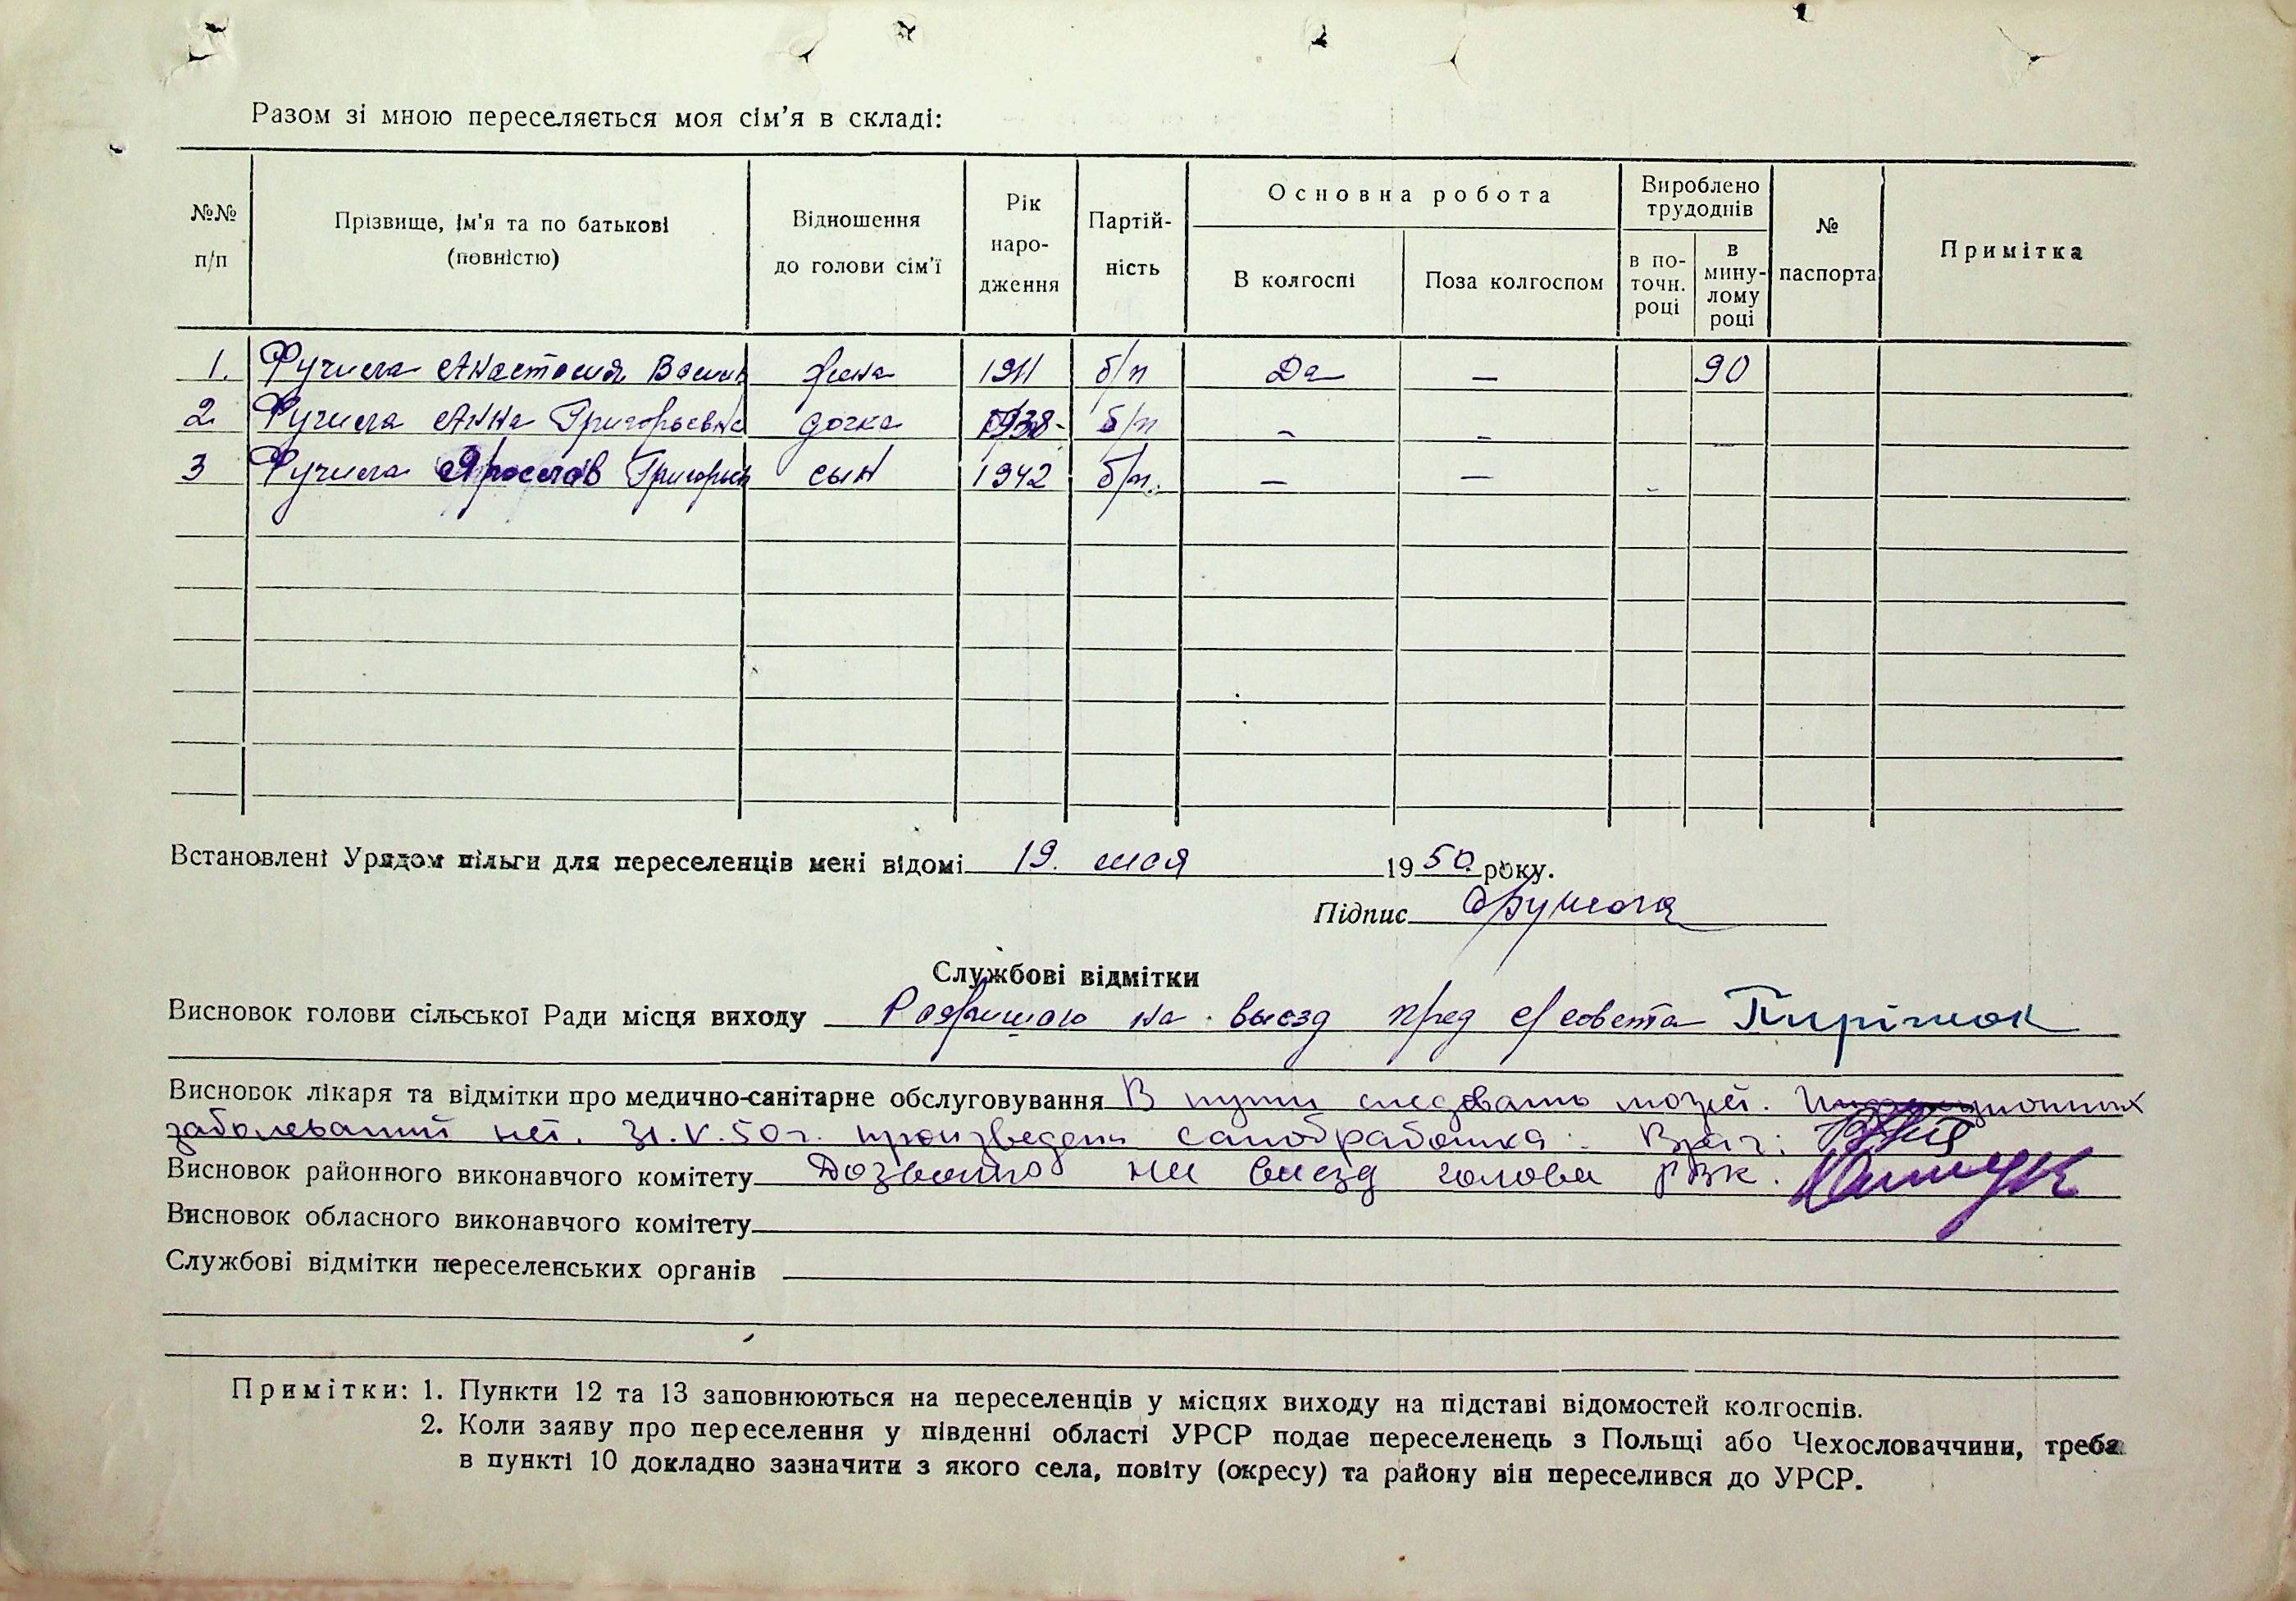 Разом зі мною переселяється моя сім'я в складі:
№№ п/п
Прізвище, ім'я та по батькові (повністю)
Відношення до голови сім'ї
Рік наро-дження
Партій-ність
Основна робота
В колгоспі
Поза колгоспом
Вироблено трудоднів
в по-точн. році
в мину-лому році
№ паспорта
Примітка
1. Фучила Анастасия Васил жена 1911 б/п Да — 90
2 Фучила Анна Григорьевна дочка 1938 б/п — —
3 Фучила Ярослав Григорьев сын 1942 б/п. — —
Встановлені Урядом пільги для переселенців мені відомі 19. мая 1950 року.
Підпис
Службові відмітки
Висновок голови сільської Ради місця виходу Разришаю на выезд пред с/совета
Висновок лікаря та відмітки про медично-санітарне обслуговування В пути следовать может. Инфекционных
заболеваний нет. 31.V.50 г. произведена санобработка. Врач:
Висновок районного виконавчого комітету Дозволяю на виезд голова РВК.
Висновок обласного виконавчого комітету
Службові відмітки переселенських органів
Примітки: 1. Пункти 12 та 13 заповнюються на переселенців у місцях виходу на підставі відомостей колгоспів.
2. Коли заяву про переселення у південні області УРСР подає переселенець з Польщі або Чехословаччини, треба
в пункті 10 докладно зазначити з якого села, повіту (окресу) та району він переселився до УРСР.